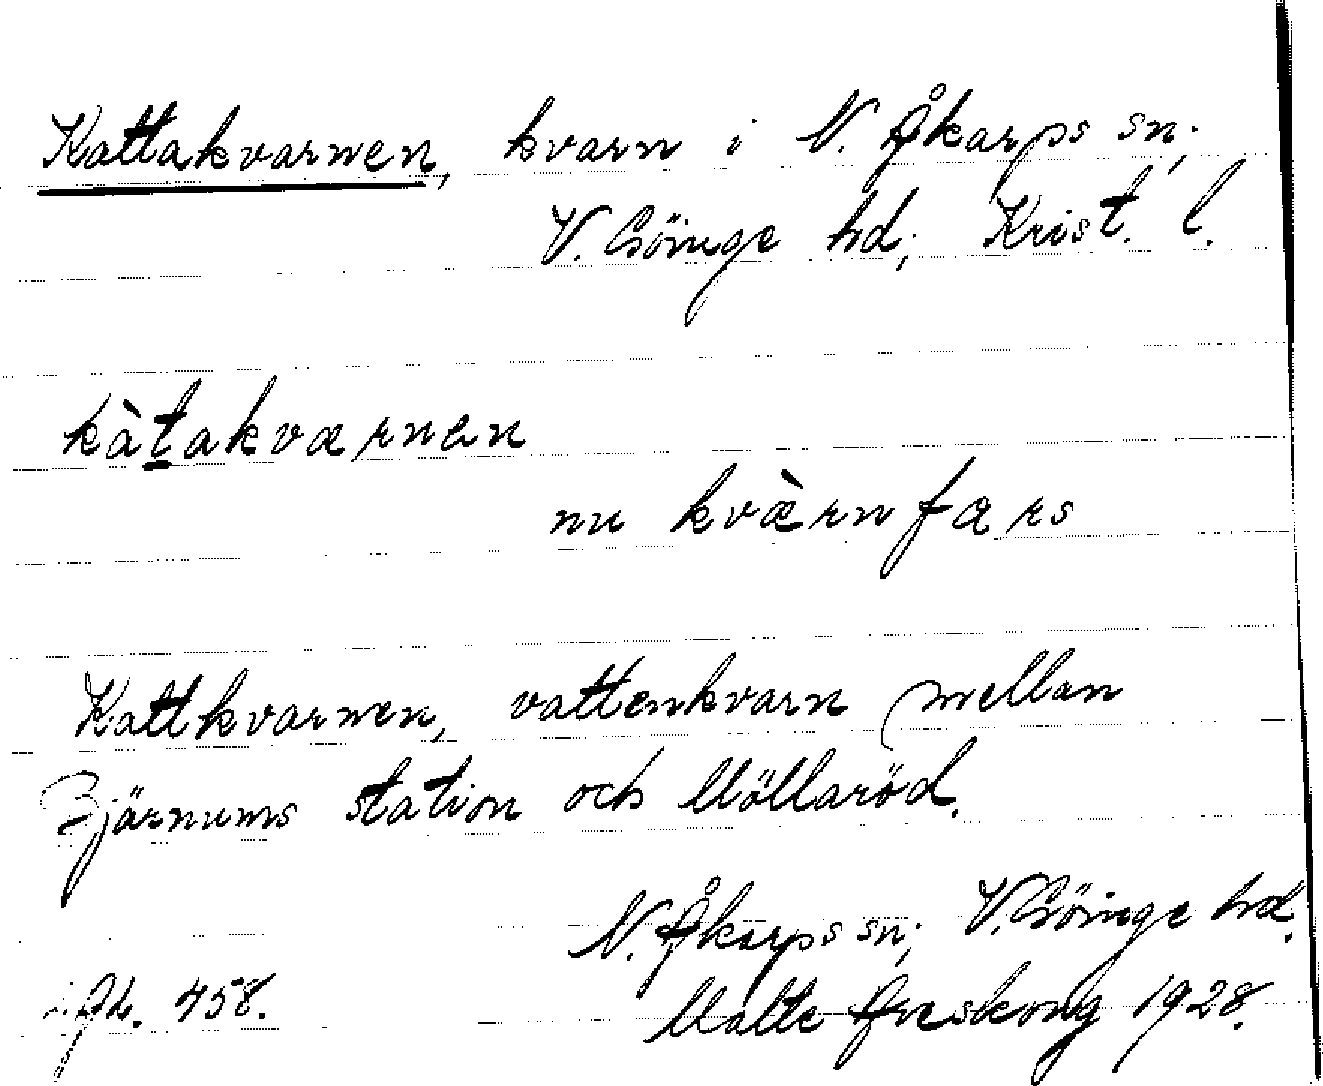 Kattakvarnen, kvarn i N. Åkarps sn;
V. Göinge hd; Krist. l.
kàtakværnen
nu kvæ̀rnfærs
Kattkvarnen, vattenkvarn mellan
Bjärnums station och Mölleröd.
N. Åkarps sn; V. Göinge hd.
458.
Malte Areskoug 1928.